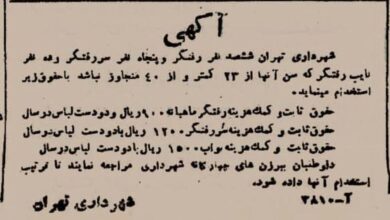 آگهی
شهرداری تهران ششصد نفر رفتگر و پنجاه نفر سررفتگر و ده نفر
نایب رفتگر که سن آنها از ۲۳ کمتر و از ۴۰ متجاوز نباشد با حقوق زیر
استخدام مینماید.
حقوق ثابت و کمک هزینه رفتگر ماهیانه ۹۰۰ ریال و دو دست لباس در سال
حقوق ثابت و کمک هزینه سررفتگر ۱۲۰۰ ریال با دو دست لباس در سال
حقوق ثابت و کمک هزینه نواب ۱۵۰۰ ریال با دو دست لباس در سال
داوطلبان ببرزن های چهارگانه شهرداری مراجعه نمایند تا ترتیب
استخدام آنها داده شود.
آ-۳۸۱۰ شهرداری تهران